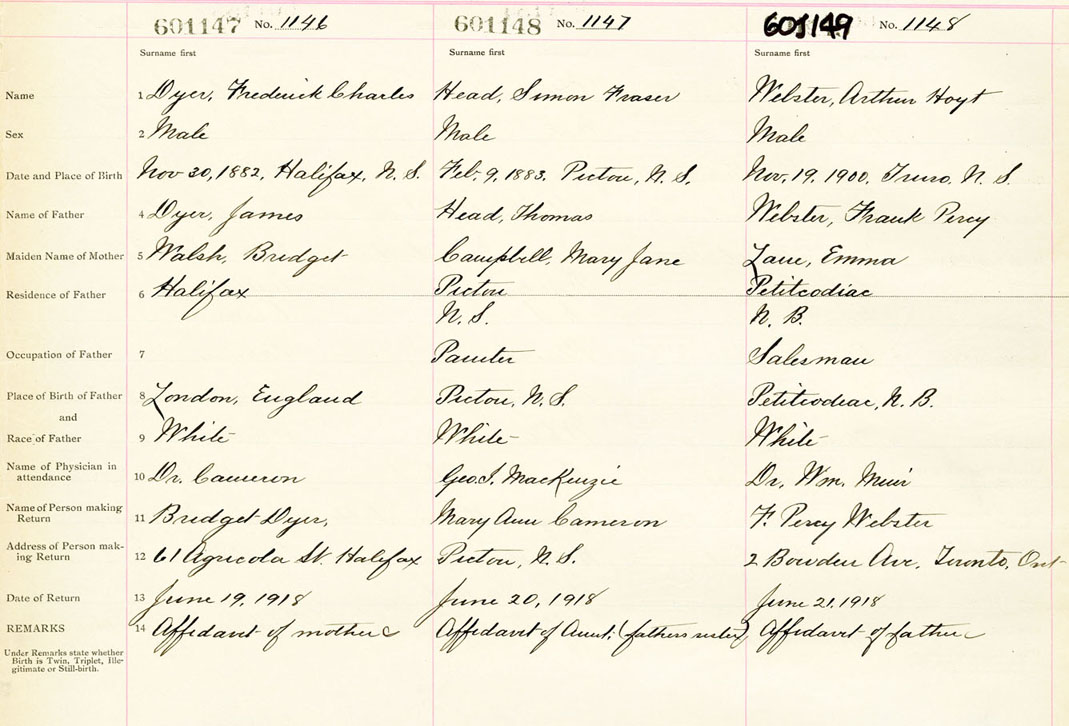 601147 No. 1146 601148 No. 1147 601149 No. 1148
Surname first Surname first Surname first
Name 1 Dyer, Frederick Charles Head, Simon Fraser Webster, Arthur Hoyt
Sex 2 Male Male Male
Date and Place of Birth Nov 30, 1882, Halifax, N. S. Feb. 9, 1883. Pictou, N. S. Nov. 19, 1900. Truro. N. S.
Name of Father 4 Dyer, James Head, Thomas Webster, Frank Percy
Maiden Name of Mother 5 Walsh, Bridget Campbell, Mary Jane Lane, Emma
Residence of Father 6 Halifax Pictou Petitcodiac
N. S. N. B.
Occupation of Father 7 Painter Salesman
Place of Birth of Father 8 London, England Pictou, N. S. Petitcodiac, N. B.
and
Race of Father 9 White White White
Name of Physician in
attendance 10 Dr. Cameron Geo. I. MacKenzie Dr. Wm. Muir
Name of Person making
Return 11 Bridget Dyer, Mary Ann Cameron F. Percy Webster
Address of Person mak-
ing Return 12 61 Agricola St. Halifax Pictou, N. S. 2 Bowden Ave. Toronto, Ont
Date of Return 13 June 19, 1918 June 20, 1918 June 21, 1918
REMARKS 14 Affidavit of mother Affidavit of Aunt. (fathers sister) Affidavit of father
Under Remarks state whether
Birth is Twin, Triplet, Ille-
gitimate or Still-birth.